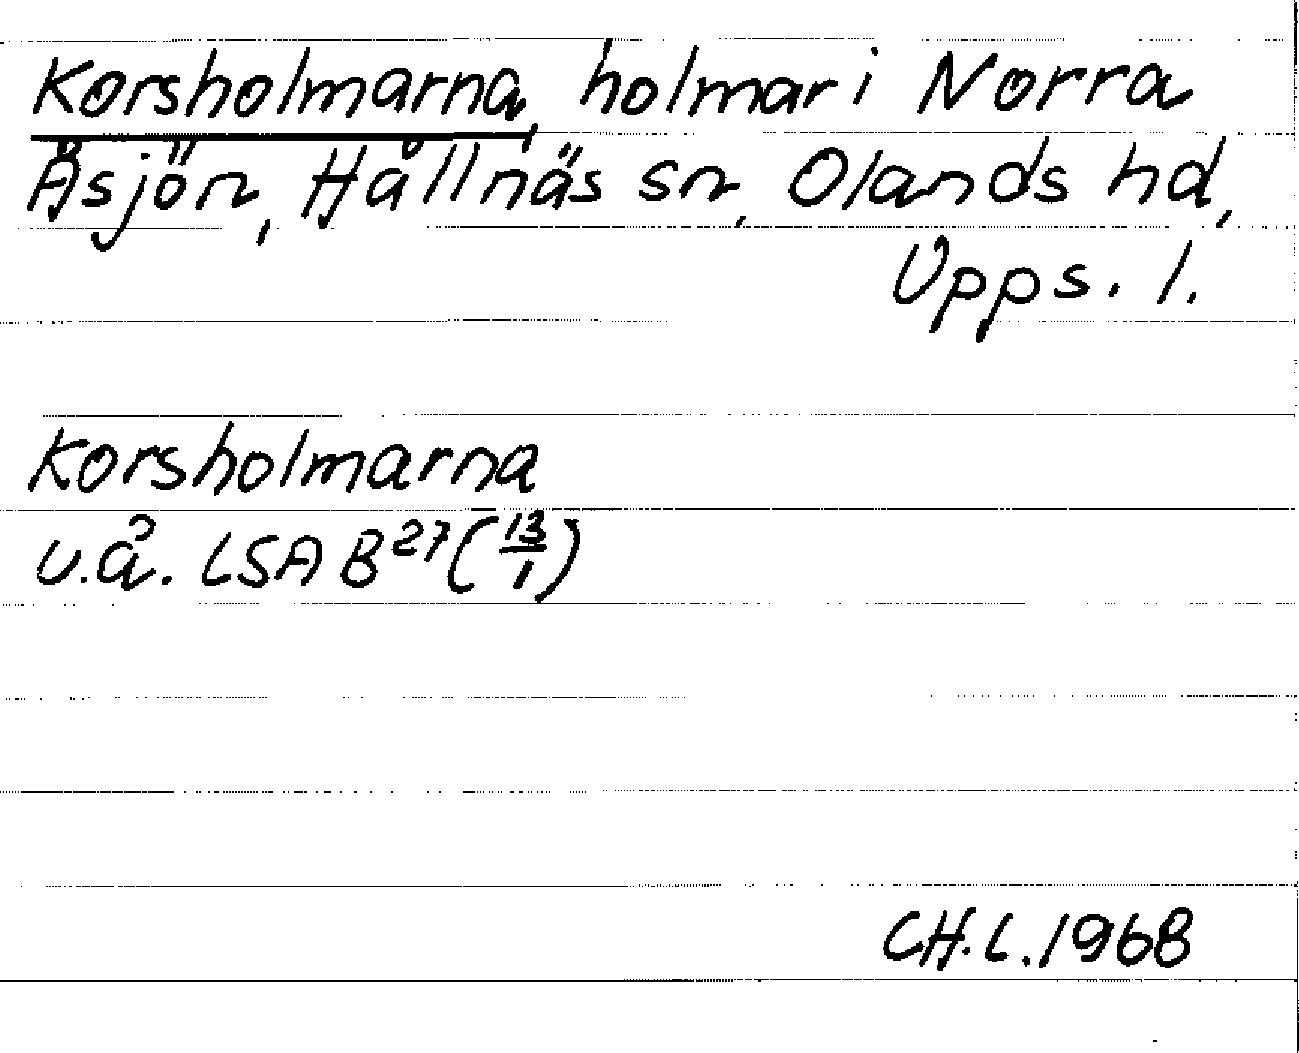 Korsholmarna, holmar i Norra
Åsjön, Hållnäs sn, Olands hd,
Upps. l.
Korsholmarna
u.å. LSA B²⁷ (13/1)
CH.L. 1968